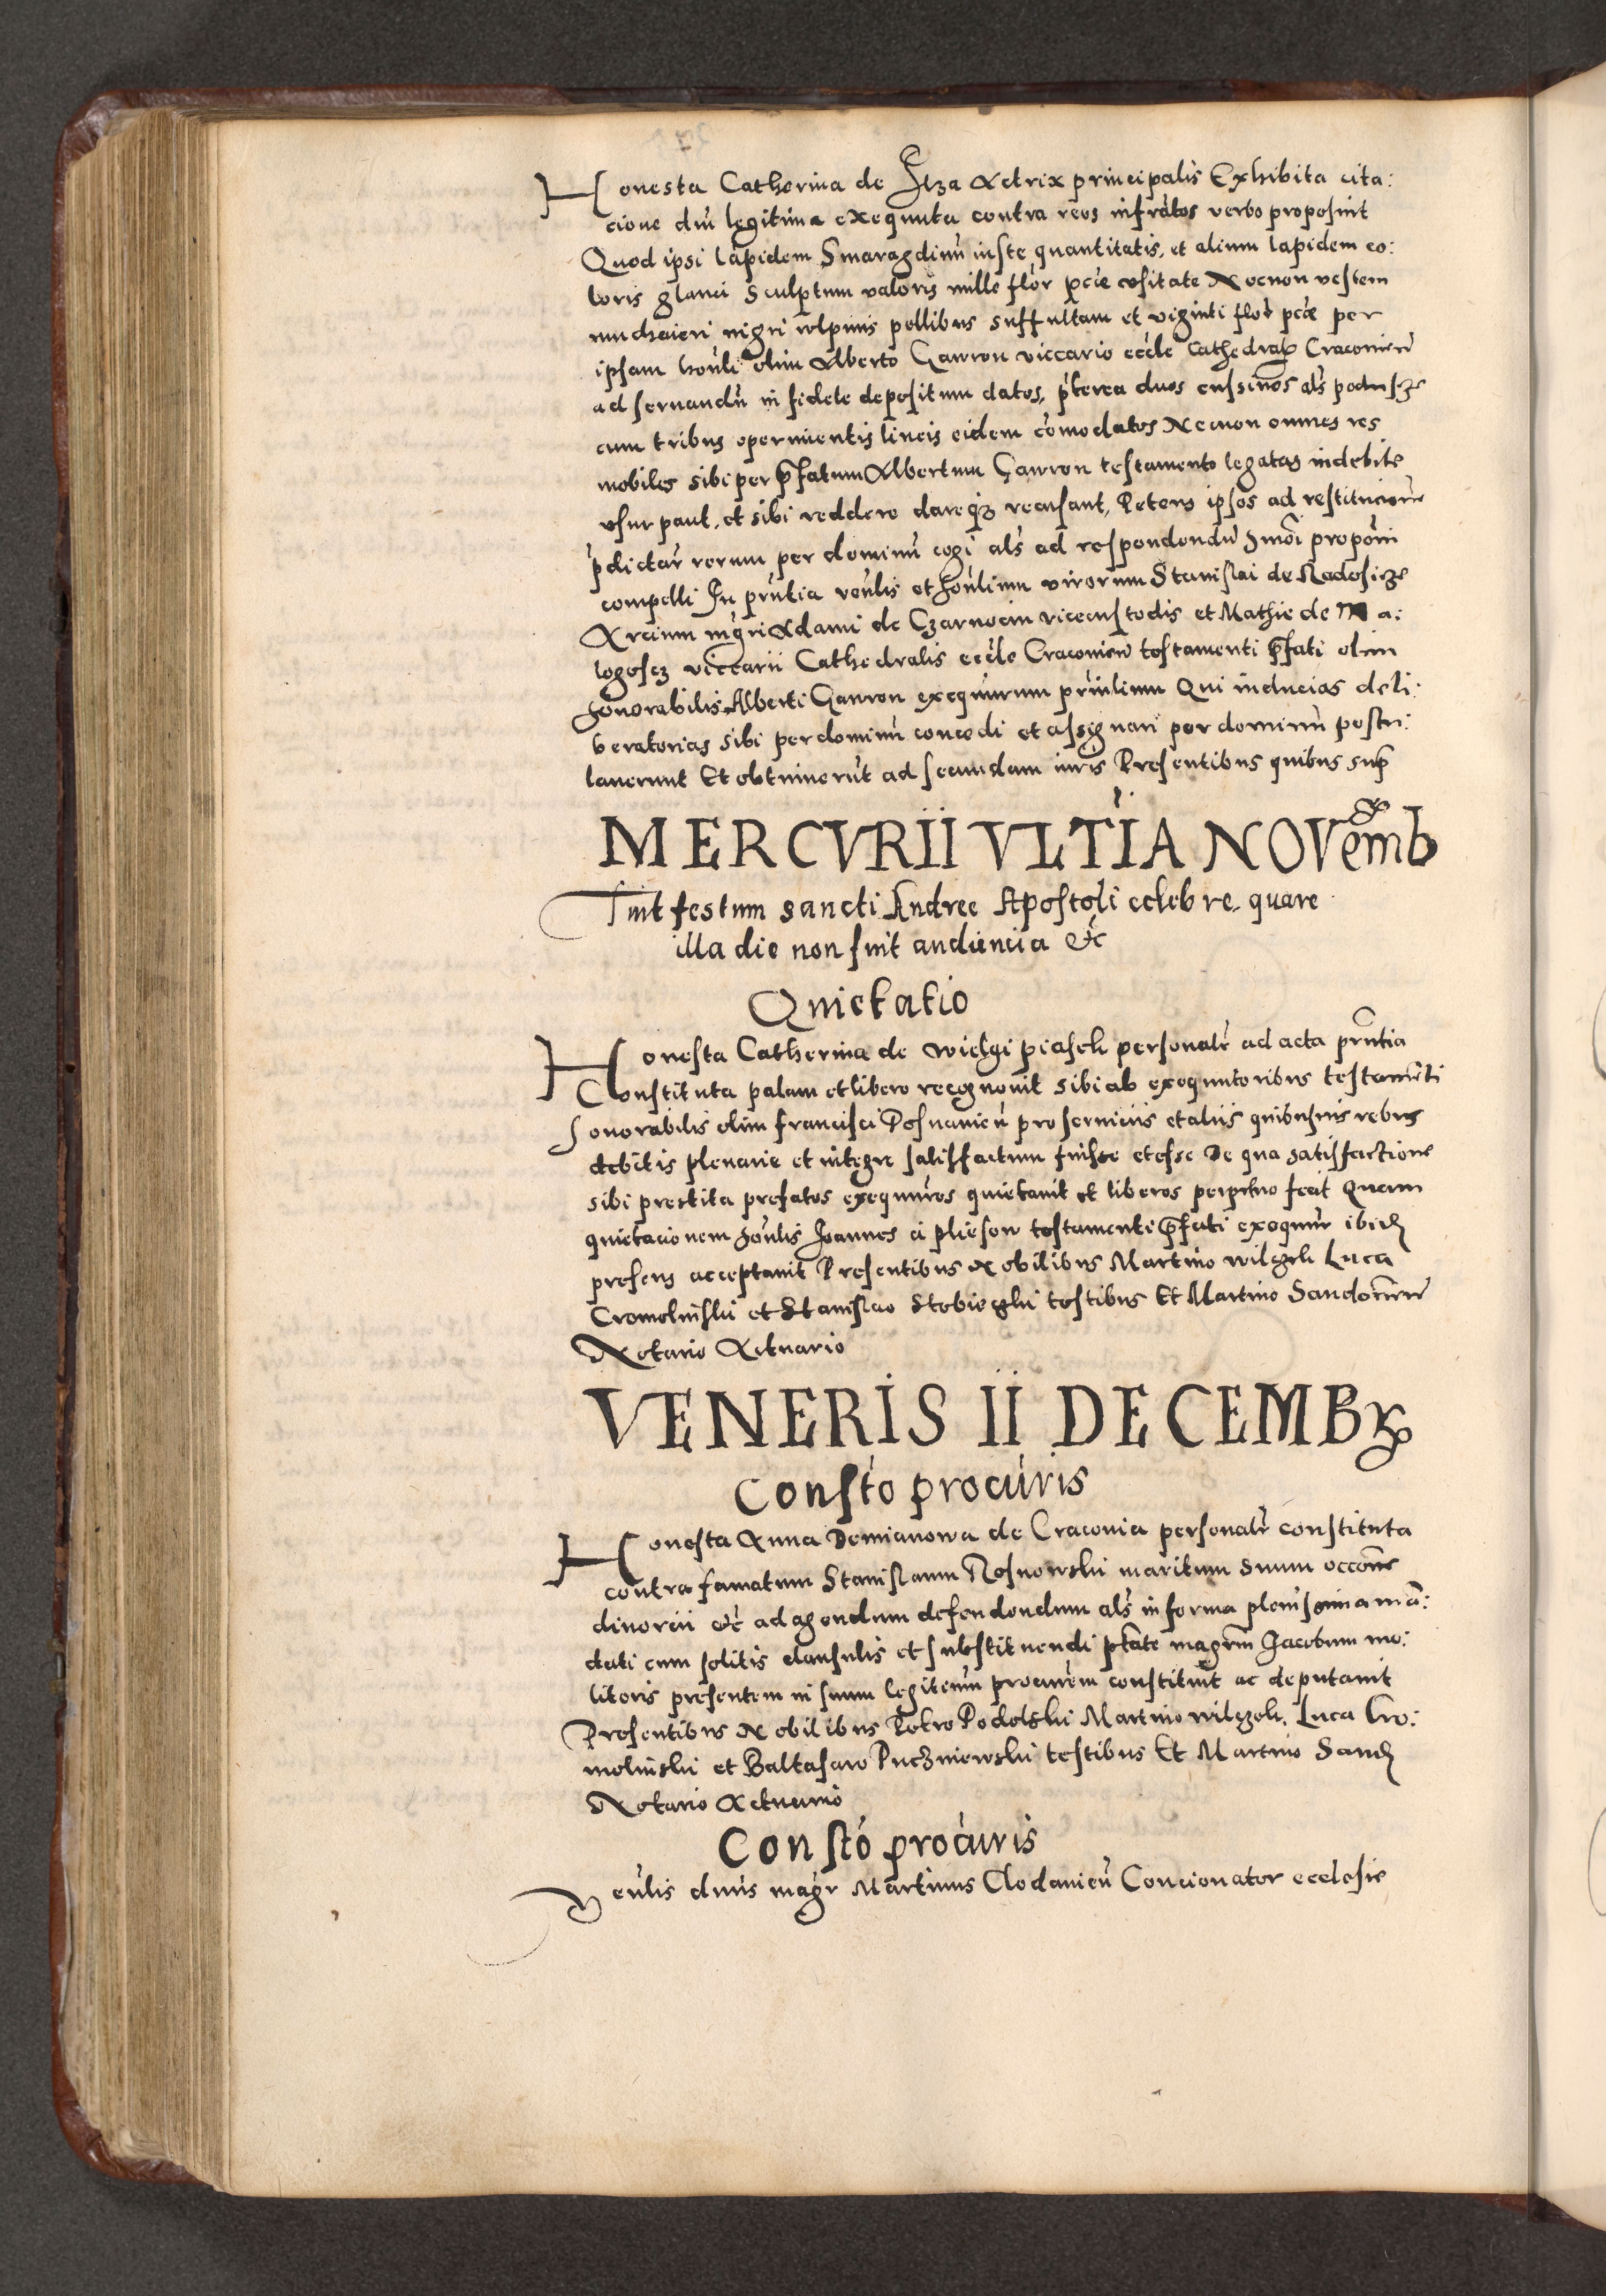 Honesta Catherina de Ilza Actrix principalis Exhibita cita:
cione dni legitima exequuta contra reos infratos verbo proposuit
Quod ipsi lapidem Smaragdinu iuste quantitatis, et alium lapidem co:
loris glauci Sculptum valoris mille flor pcie usitate Necnon vestem
muchaieri nigri vulpinis pellibus suffultam et viginti flor pcie per
ipsam honli olim Alberto Gawron viccario eccle Cathedral Cracovien
ad servandu in fidele depositum datos, pterea duos cussinos als
cum tribus operimentis lineis eidem comodatos Necnon omnes res
mobiles sibi per pfatum Albertum Gawron testamento legatas indebite
usurpant, et sibi reddere dareqz recusant, Petens ipsos ad restitucione
pdictar rerum per dominu cogi als ad respondendu smoi proponi
compelli In pntia venlis et honlium virorum Stanislai de Radosicze
Arcium mgri Adami de Czarnocin vicecustodis et Mathie de Ma:
logoscz viccarii Cathedralis eccle Cracovien testamenti pfati olim
honorabilis Alberti Gawron exequurum prinlium Qui inducias deli:
beratorias sibi per dominu concedi et assignari per dominu postu:
laverunt Et obtinuerut ad secundam iuris Presentibus quibus sup
MERCVRII VLTIA NOVemb
Fuit festum sancti Andree Apostoli celebre, quare
illa die non fuit audiencia etc
Quietatio
Honesta Catherina de wielgi personalr ad acta pntia
Constituta palam et libere recognovit sibi ab exequutoribus testamti
honorabilis olim francisci Posnanien pro serviciis et aliis quibusvis rebus
debitis plenarie et integre satisfactum fuisse et esse De qua satisfactione
sibi prestita prefatos exequures quietavit et liberos perpetuo fecit Quam
quietacionem honlis Joannes a testamenti pfati exequur ibid
presens acceptavit Presentibus Nobilibus Martino Luca
Cromolinski et Stanislao testibus Et Martino Sandomirien
Notario Actuario
VENERIS II DECEMBR
Consto procuris
Honesta Anna Demianowa de Cracovia personalr constituta
contra famatum Stanislaum Rosnowski maritum suum occone
divorcii etc ad agendum defendendum als in forma plenissima ma:
dati cum solitis clausulis et substituendi ptate magrm Jacobum mo:
litoris presentem in suum legitimu procurem constituit ac deputavit
Presentibus Nobilibus Petro Podolski Martino Luca Cro:
molinski et Baltasaro Puczniewski testibus Et Martino Sand
Notario Actuario
Consto procuris
Venlis dnus magr Martinus Clodavien Concionator ecclesie